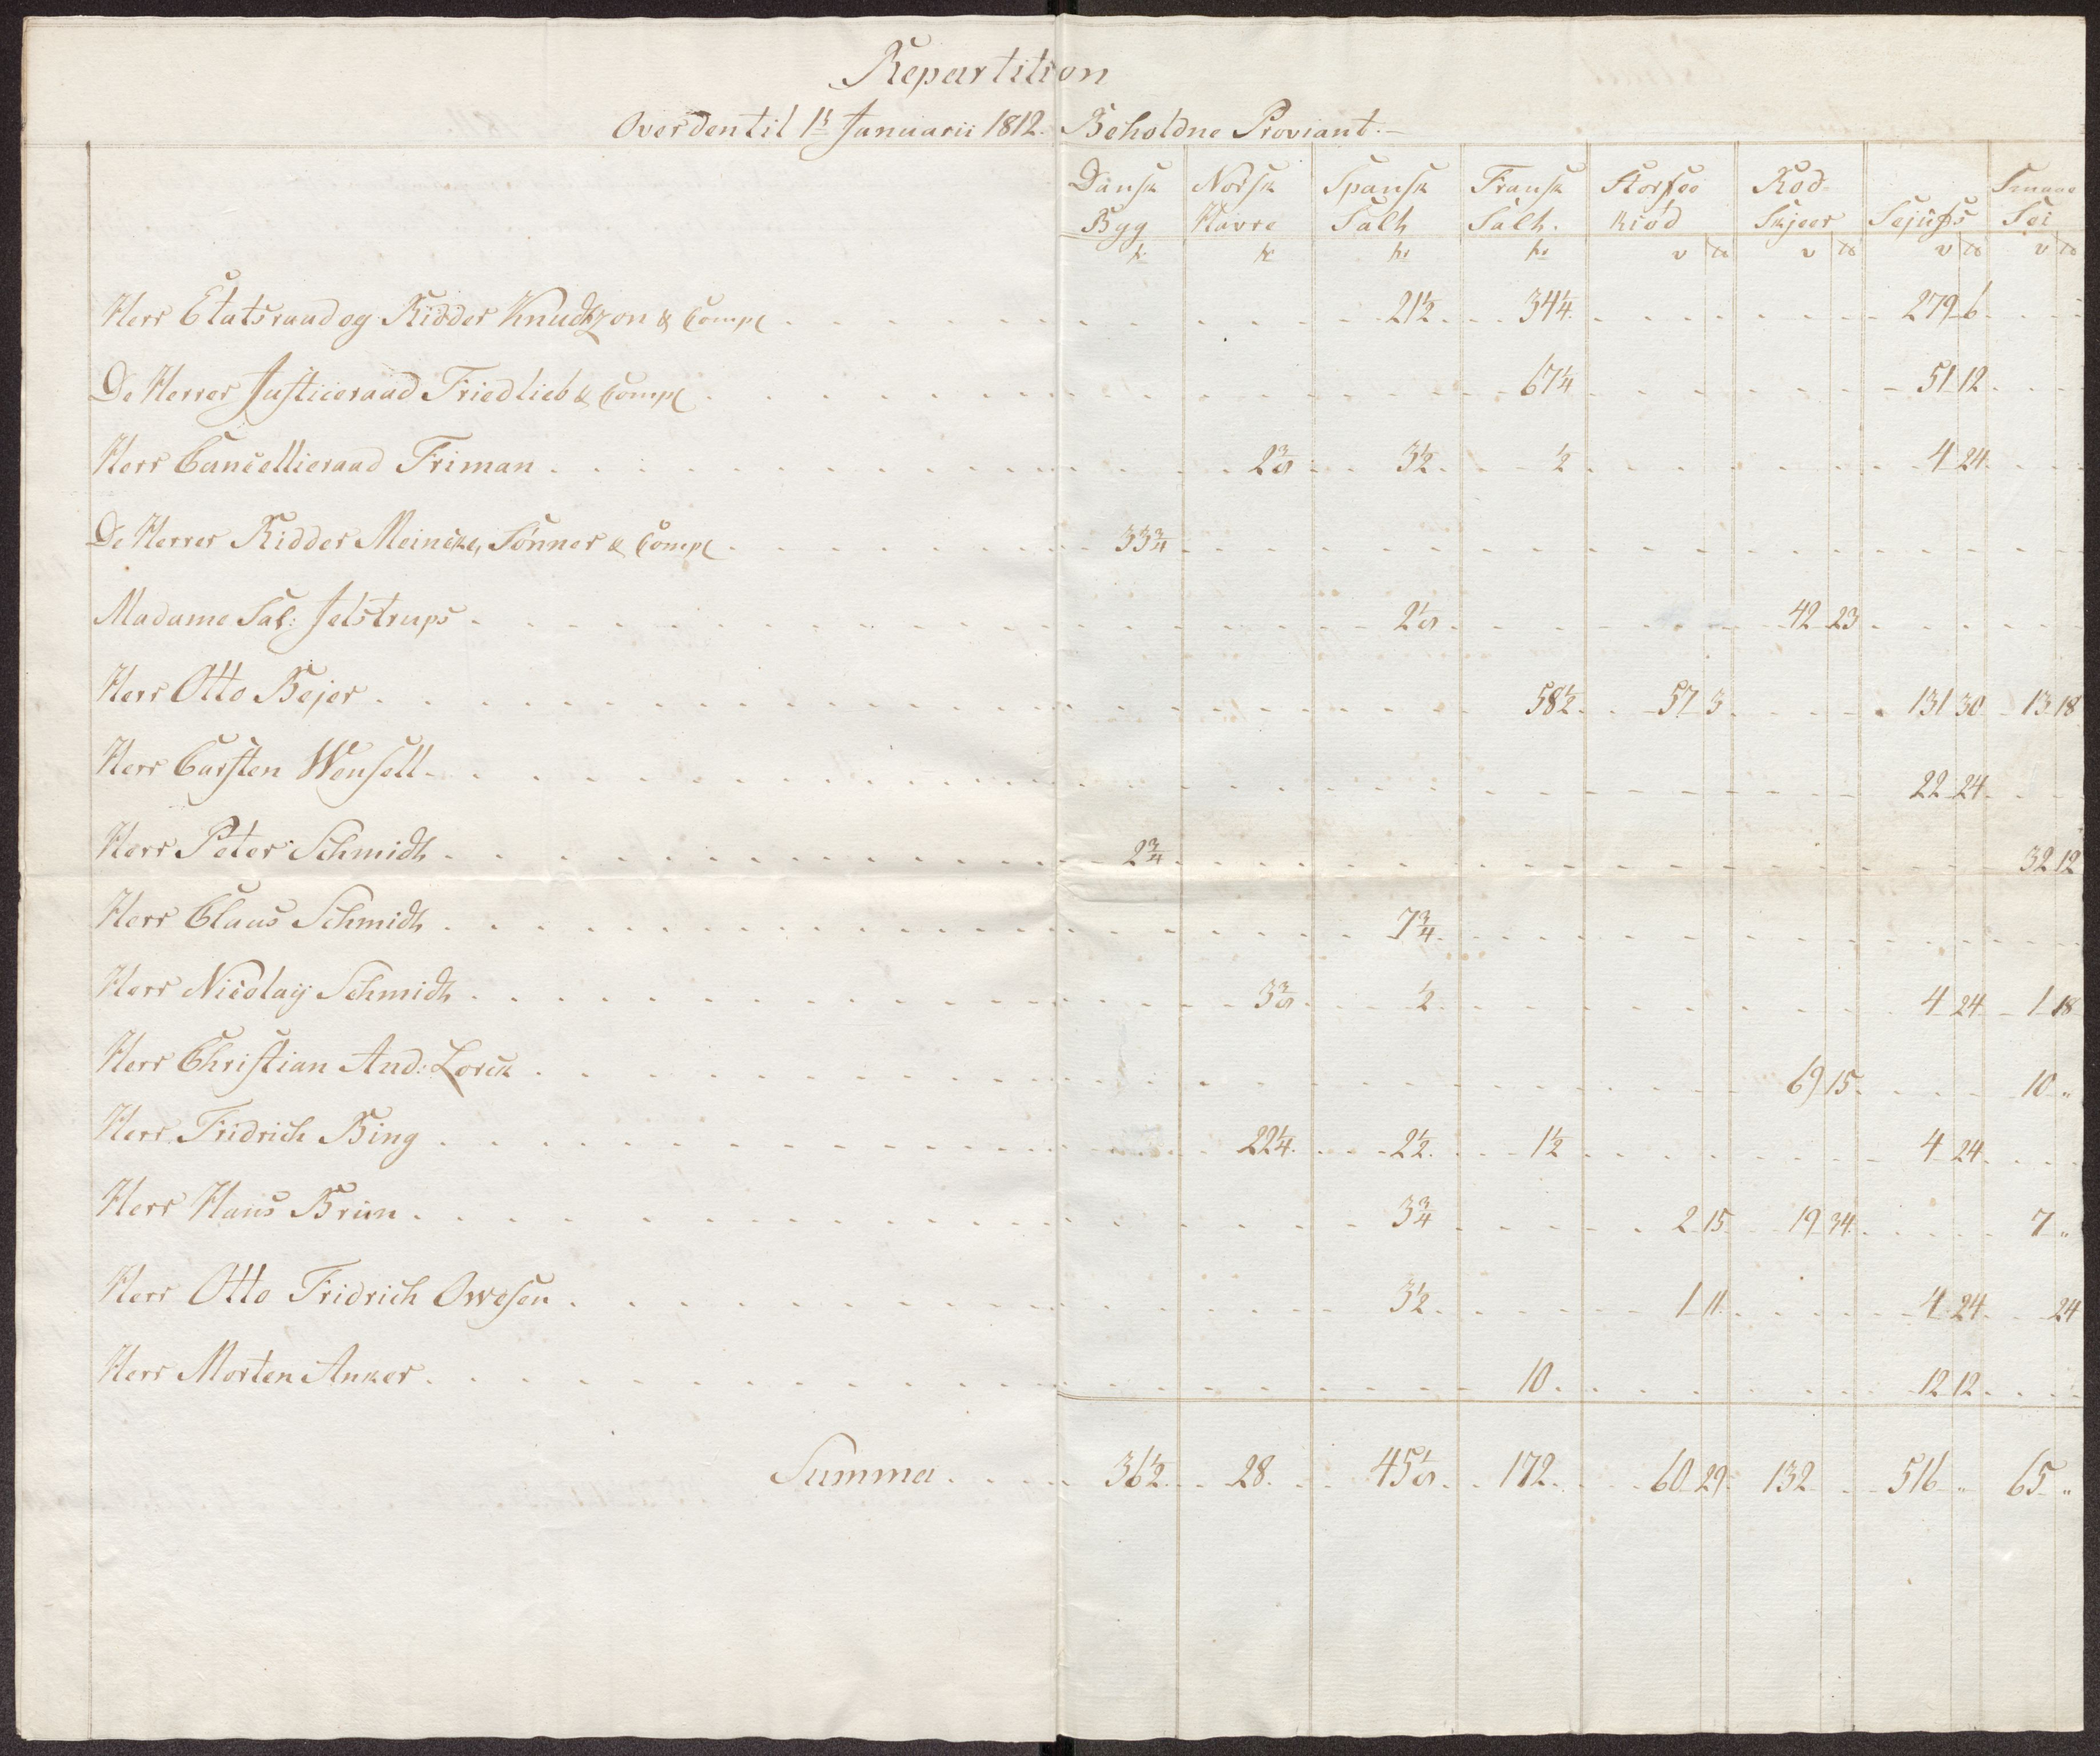 Repartition
Over den til 1ste Januarii 1812. Beholdne Proviant.
Dansk Byg Norsk Havre Spansk Salt Fransk Salt. kiød Rød Skjeer Sejüfs Smaae Sei
Herr Etatsraad og Ridder Knudtzon & Comp 21½ 34¼ 279 6
De Herrer Justiceraad Friedlieb & Comp 67¼ 51 12
Herr Cancellieraad Friman 2⅜ 3½ ½ 4 24
De Herrer Ridder Meincke, Sønner & Comp 33¾
Madame Sal: Jelstrups 2⅛ 42 23
Herr Otto Bejer 58½ 57 3 131 30 13 18
Herr Carsten Wensell 22 24
Herr Peter Schmidt 2¾ 32 12
Herr Claus Schmidt 7¾
Herr Nicolaij Schmidt 3⅜ ½ 4 24 1 18
Herr Christian And: Lorck 69 15 10 "
Herr Fridrich Bing 22¼ 2½ 1½ 4 24
Herr Hans Brün 3¾ 2 15 19 34 7 "
Herr Otto Fridrich Owesen 3½ 1 11 4 24 24
Herr Morten Anker 10 12 12
Summa 36½ 28 45⅛ 172 60 29 132 516 " 65 "